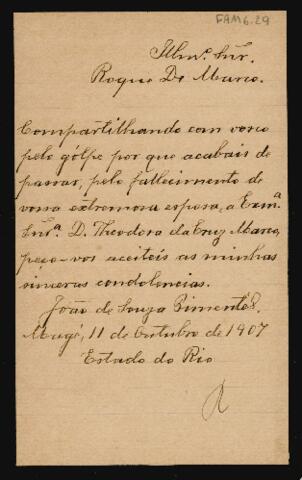 FAM6.29
Illmº. Snr.
Roque De Marco.
Compartilhando com vosco
pelo gólpe por que acabais de
passar, pelo fallecimento de
vossa extremosa esposa, a Exmª
Snrª. D. Theodora da Cruz Marco,
peço-vos aceiteis as minhas
sinceras condolencias.
João de Souza Pimentel.
Magé, 11 de Outubro de 1907
Estado do Rio